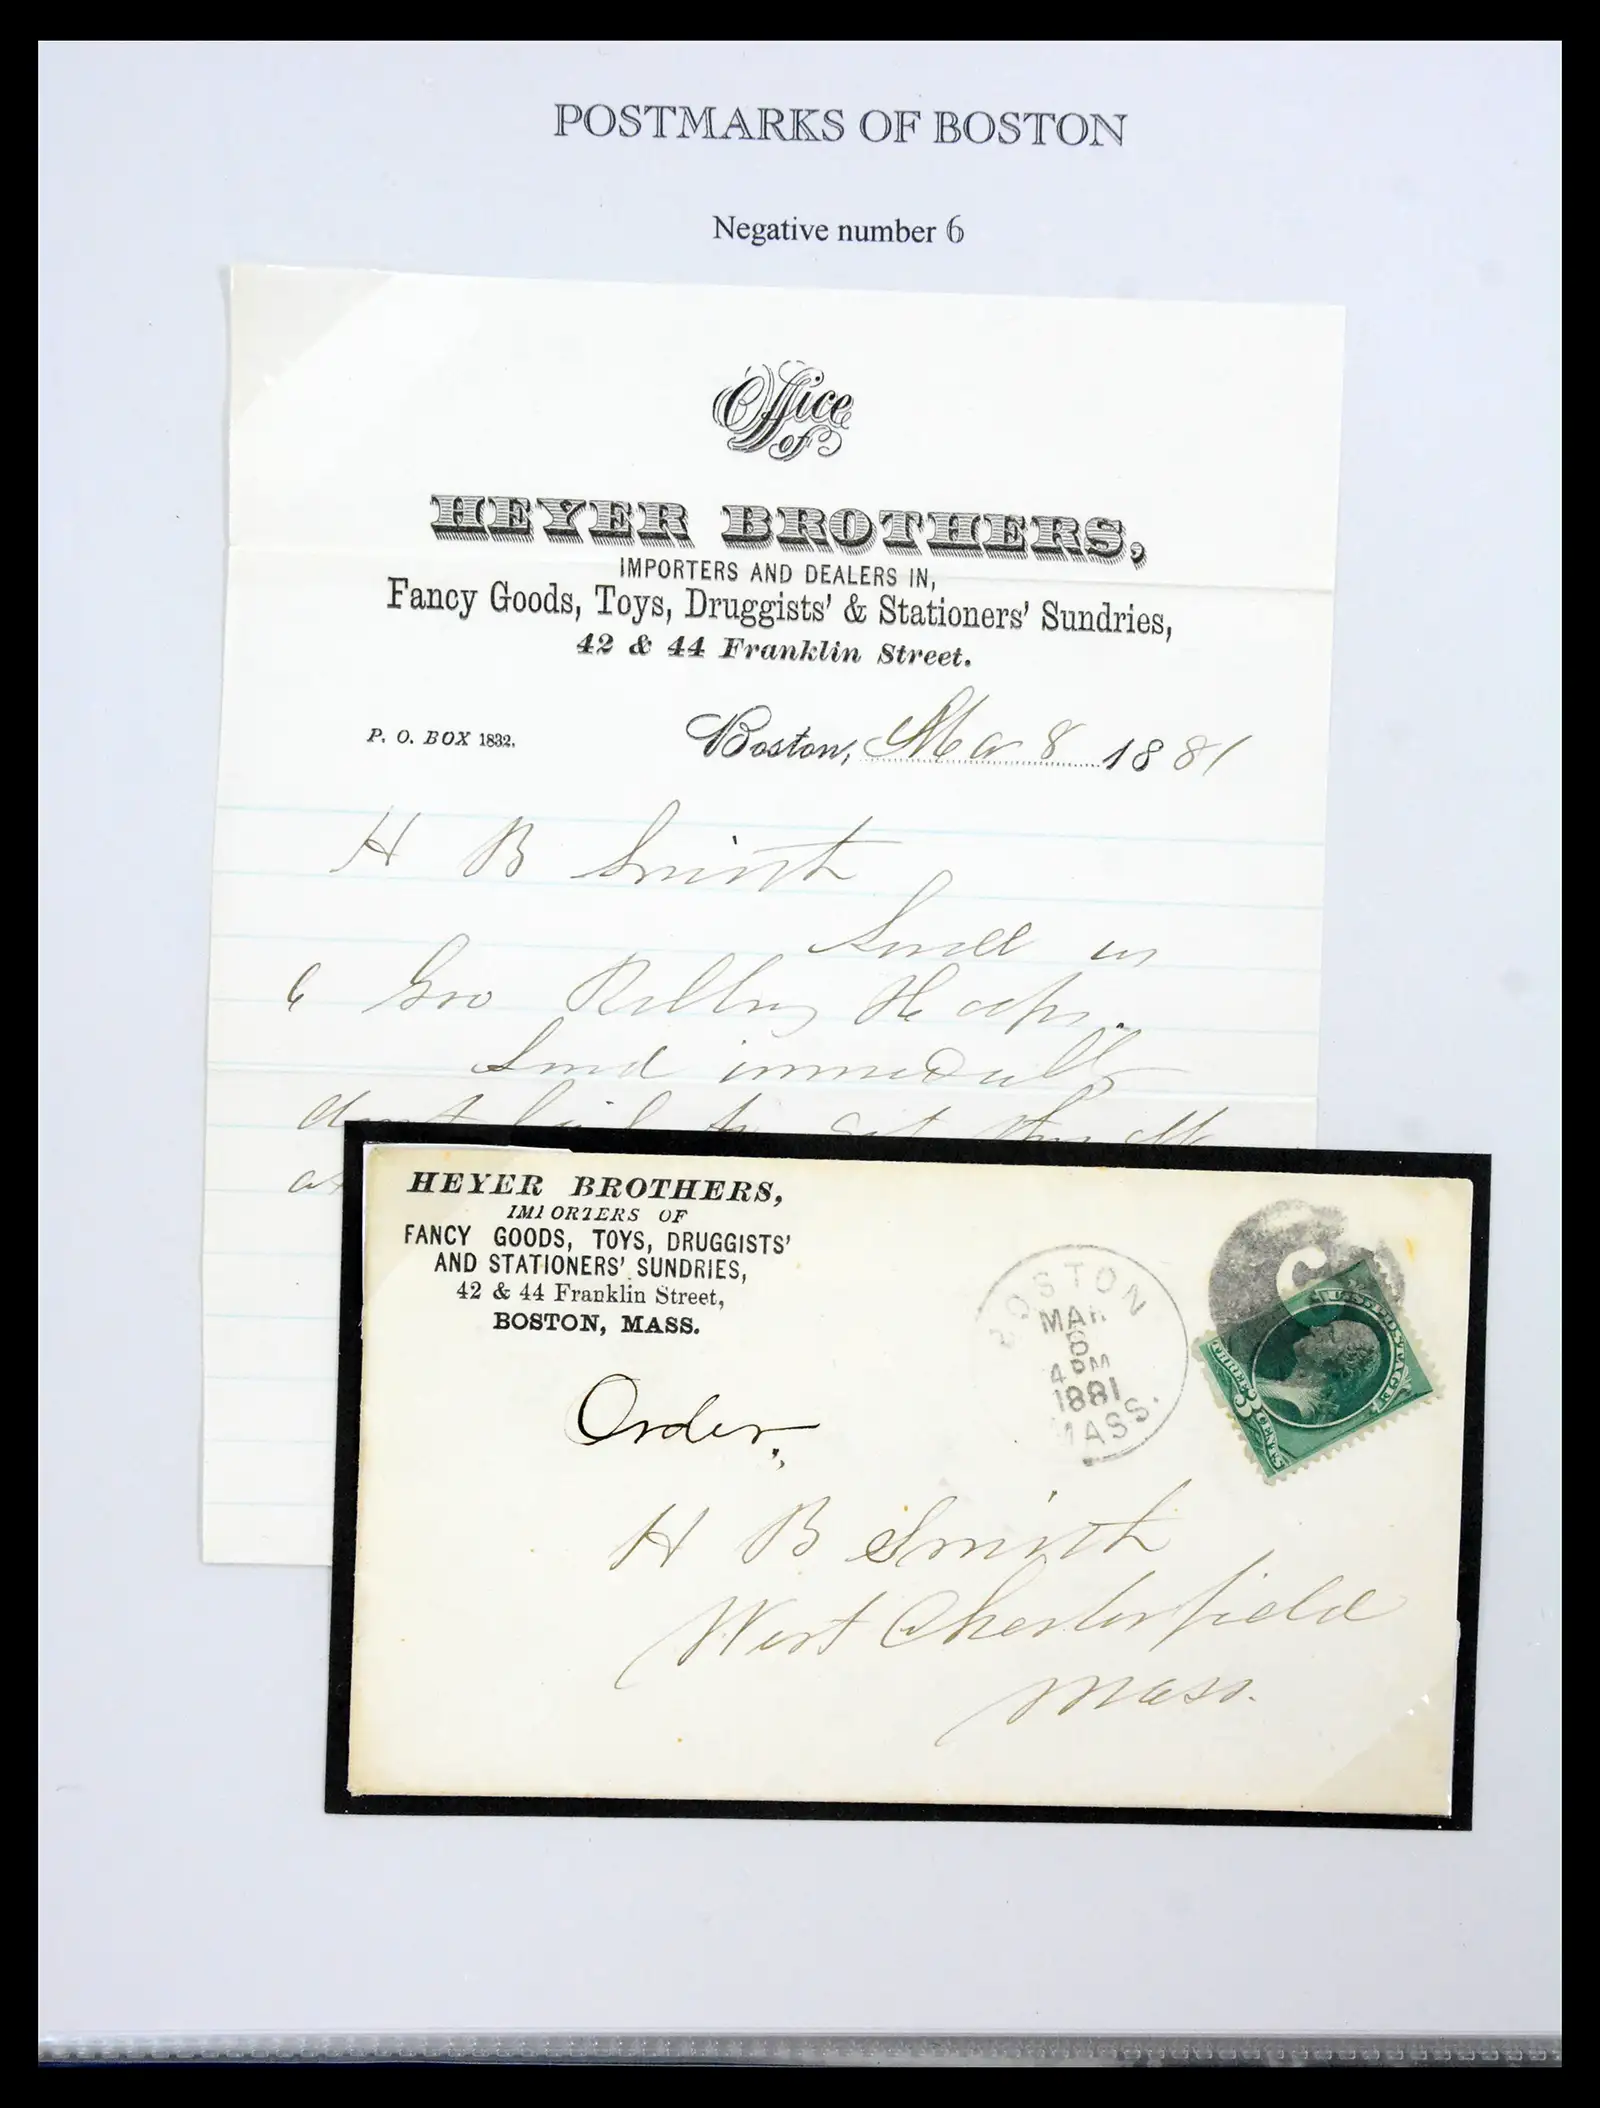 POSTMARKS OF BOSTON
Negative number 6
Office
of
HEYER BROTHERS,
IMPORTERS AND DEALERS IN,
Fancy Goods, Toys, Druggists' & Stationers' Sundries,
42 & 44 Franklin Street.
P. O. BOX 1832.
Boston, Mar 8 1881
H B Smith
Send us
6 Gro Hoops.
Send
HEYER BROTHERS,
IMPORTERS OF
FANCY GOODS, TOYS, DRUGGISTS'
AND STATIONERS' SUNDRIES,
42 & 44 Franklin Street,
BOSTON, MASS.
Order,
BOSTON
MAR
8
4 PM
1881
MASS.
U.S. POSTAGE
THREE 3 CENTS
H B Smith
West Chesterfield
Mass.